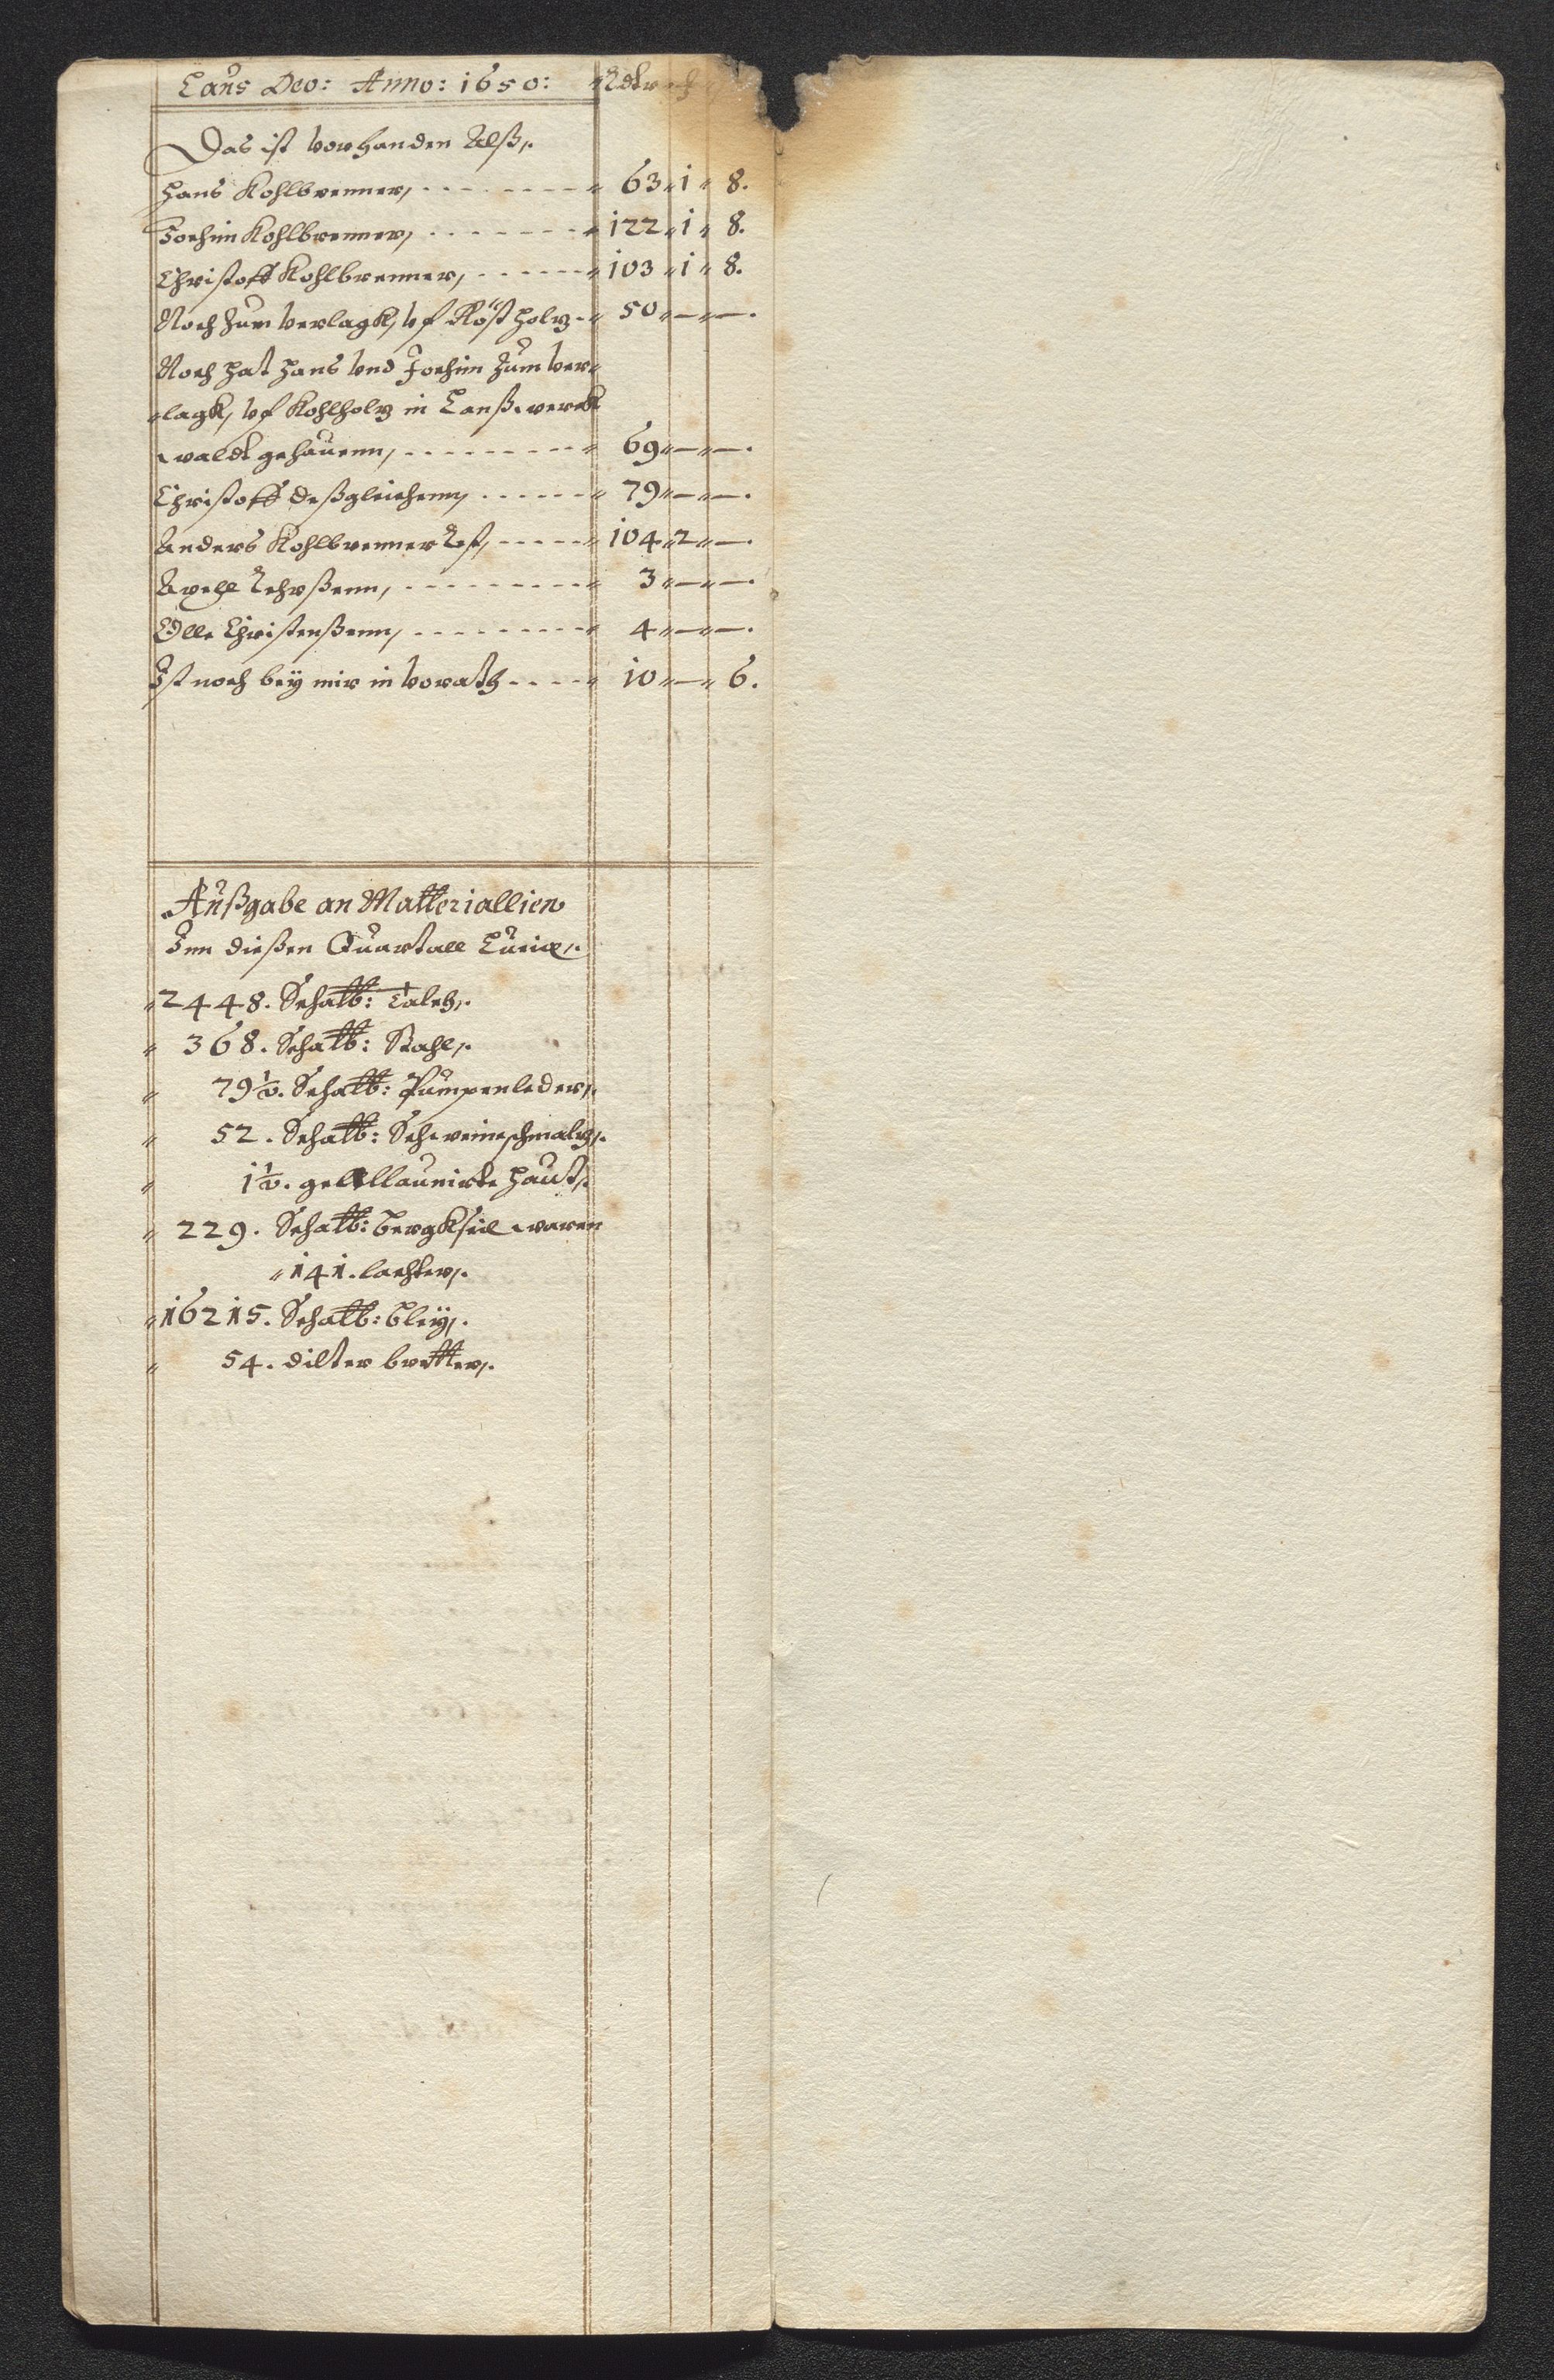 Laus Deo: Anno: 1650: Rdlr
Das ist vorhanden Alß,
Hans Kohlbrenner, 63 1 8.
Jochim Kohlbrenner, 122 1 8.
Christoff Kohlbrenner, 103 1 8.
Noch zum verlagk, vf Röst holtz 50 — —.
Noch hat Hans vnd Jochim zum ver
lagk, vf Kohlholtz in Lanß werck
waldt gehauenn, 69 — —.
Christoff deßgleichenn, 79 — —.
Anders Kohlbrenner 104 2 —.
Axell 3 — —.
Olle Christenßenn, 4 — —.
Ist noch bey mir in vorath 10 — 6.
Außgabe an Matteriallien
Inn dießen Quartall Luciæ,
2448. Schatt: Talch,
368. Schatt: Stahl,
79½. Schatt: Pumpenleder,
52. Schatt: Schweineschmaltz,
1½. haut,
229. Schatt: bergkseil waren
141. lachter,
16215. Schatt: bley,
54. dilter bretter,